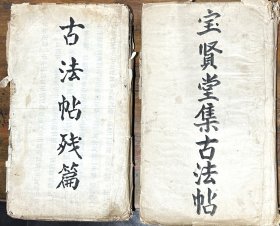 古法帖残篇
宝贤堂集古法帖